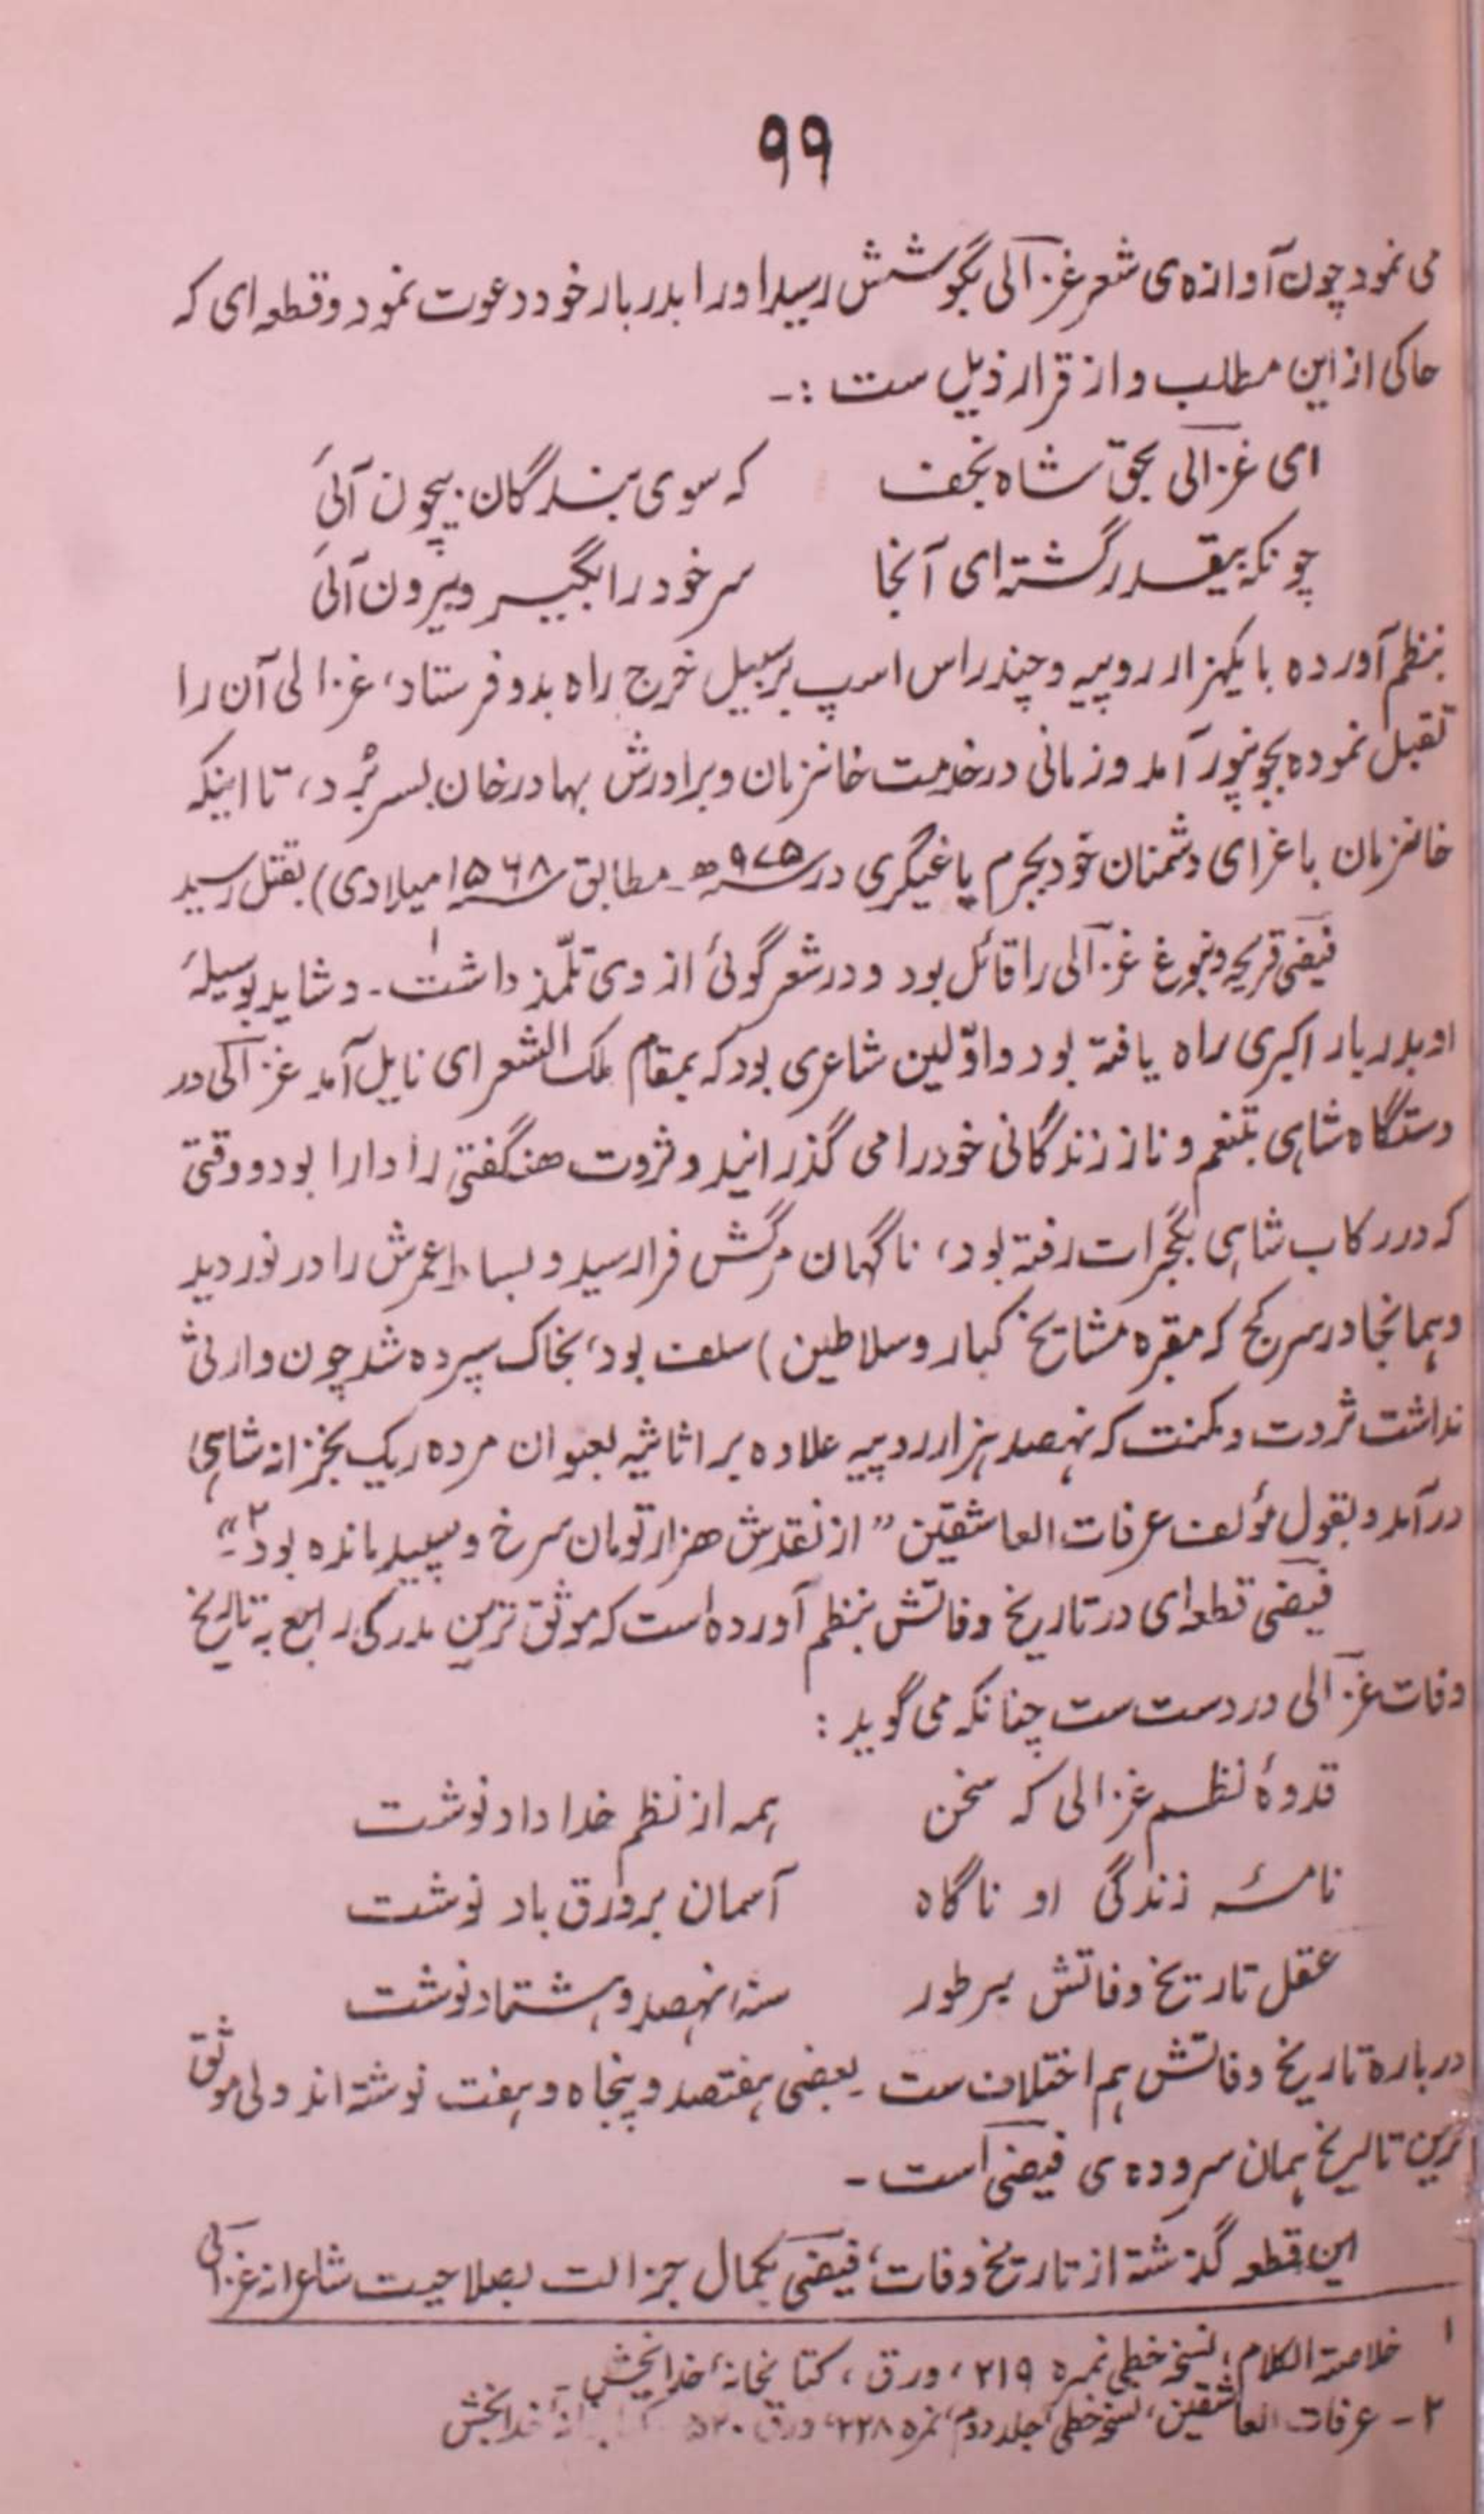 ۹۹
می نمود چون آوازه‌ی شعر غزالی بگوشش رسید او را بدربار خود دعوت نمود و قطعه ای که
حاکی از این مطلب و از قرار ذیل ست :-
ای غزالی بحقّ شاه نجف که سوی بندگان بیچون آئی
چونکه بیقدر گشته ای آنجا سر خود را بگیر و بیرون آئی
بنظم آورده با یکهزار روپیه و چند راس اسپ برسبیل خرج راه بدو فرستاد، غزالی آن را
تقبل نموده بجونپور آمد و زمانی در خدمت خانزمان و برادرش بهادر خان بسر برد، تا اینکه
خانزمان باغزای دشمنان خود بجرم یاغیگری در سنه ۹۷۵ھ - مطابق سنه ۱۵۶۸ میلادی) بقتل رسید
فیضی قریحه و نبوغ غزالی را قائل بود و در شعر گوئی از وی تلمّذ داشت۱ - و شاید بوسیلهٔ
او بدربار اکبری راه یافته بود و اوّلین شاعری بود که بمقام ملک الشعرای نایل آمد غزالی در
دستگاه شاهی بتنعم و ناز زندگانی خود را می گذرانید و ثروت هنگفتی را دارا بود و وقتی
که در رکاب شاهی بگجرات رفته بود، ناگهان مرگش فرا رسید و بساط عمرش را در نوردید
و همانجا در سرکج که مقبره مشایخ کبار و سلاطین) سلف بود، بخاک سپرده شد چون وارثی
نداشت ثروت و مکنت که نهصد هزار روپیه علاوه بر اثاثیه بعنوان مرده ریک بخزانه شاهی
در آمد و بقول مؤلف عرفات العاشقین " از نقدش هزار تومان سرخ و سپید مانده بود۲"-
فیضی قطعه‌ای در تاریخ وفاتش بنظم آورده است که موثق ترین مدرکی راجع به تاریخ
وفات غزالی در دست ست چنانکه می گوید :
قدوهٔ نظم غزالی که سخن همه از نظم خدا داد نوشت
نامهٔ زندگی او ناگاه آسمان بر ورق باد نوشت
عقل تاریخ وفاتش بر طور سنه نهصد و هشتاد نوشت
دربارهٔ تاریخ وفاتش هم اختلاف ست - بعضی هفتصد و پنجاه و هفت نوشته اند ولی موثق
ترین تاریخ همان سروده‌ی فیضی است -
این قطعه گذشته از تاریخ وفات، فیضی بکمال جزالت بصلاحیت شاعرانه غزالی
۱ خلاصة الکلام، نسخه خطی نمره ۲۱۹، ورق، کتابخانهٔ خدا بخش -
۲- عرفات العاشقین، نسخه خطی، جلد دوم، نمره ۲۲۸، ورق ۵۲۰ خدا بخش